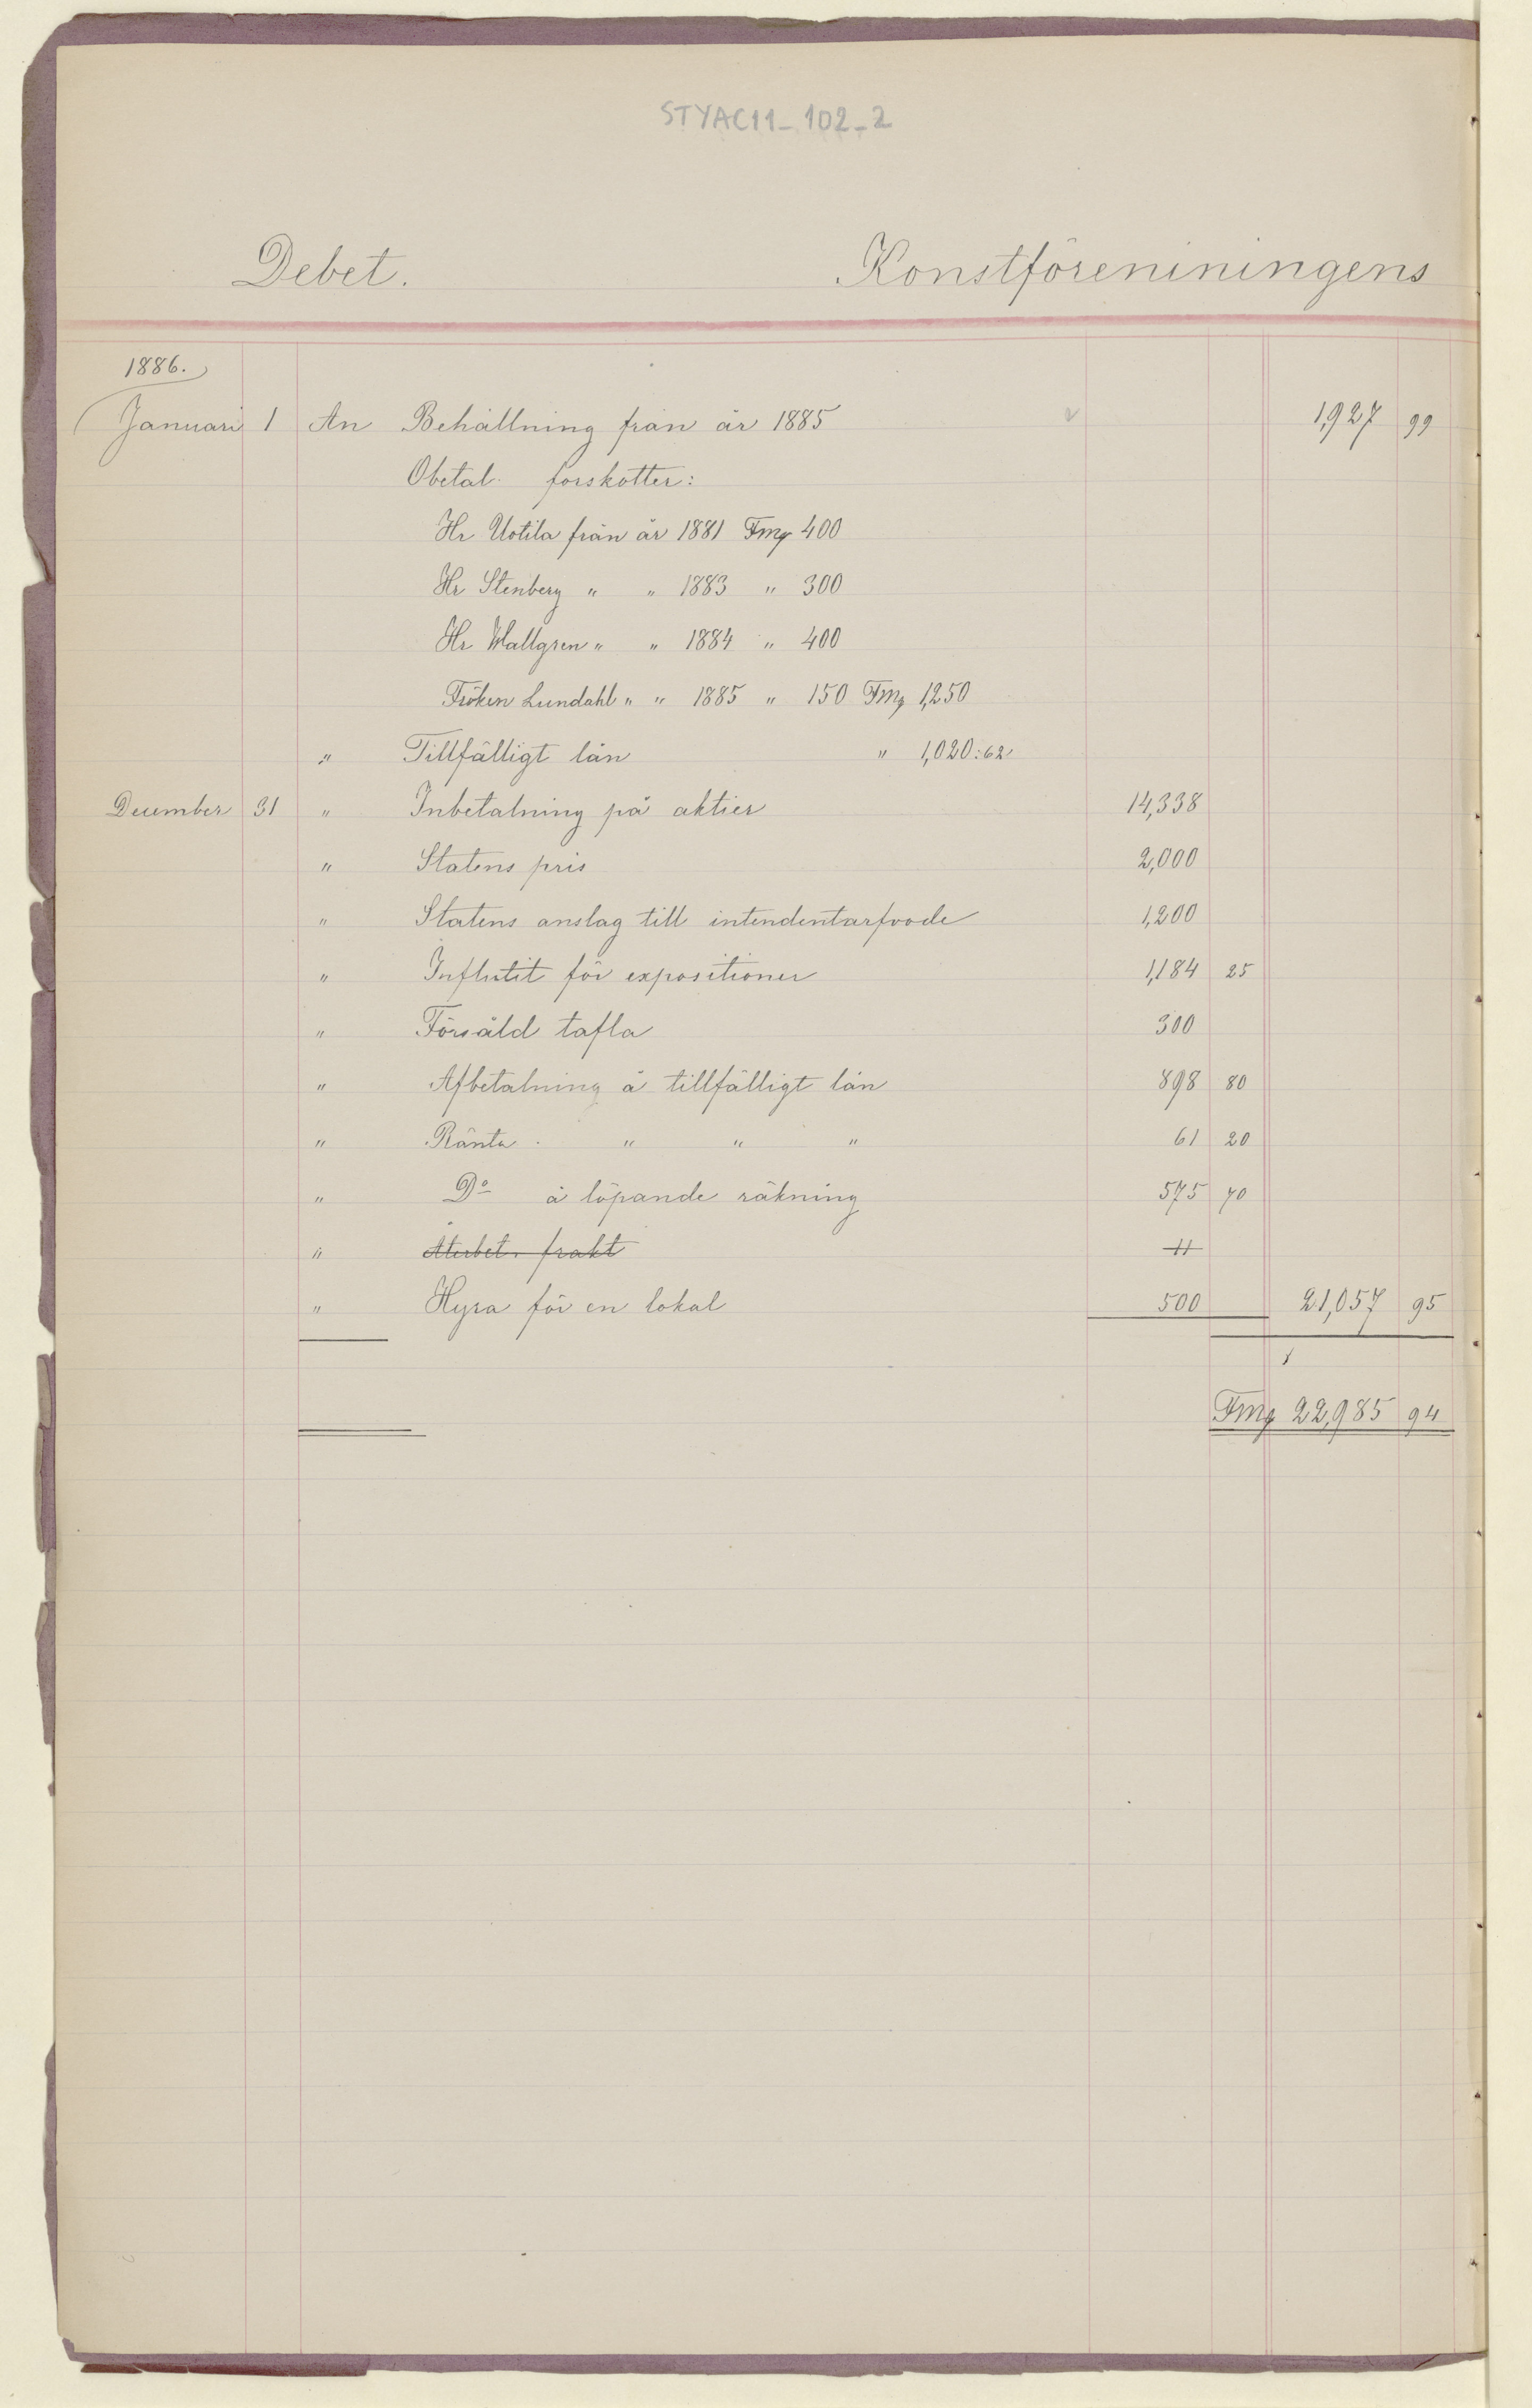 STYAC11-102-2
Debet. Konstföreniningens
1886.
Januari 1 An Behållning från år 1885 1,927 99
Obetal. förskotter:
Hr Uotila från år 1881 Fmg 400
Hr Stenberg " " 1883 " 300
Hr Wallgren " " 1884 " 400
Fröken Lundahl " " 1885 " 150 Fmg 1,250
" Tillfälligt lån " 1,020:62
December 31 " Inbetalning på aktier 14,338
" Statens pris 2,000
" Statens anslag till intendentarfvode 1,200
" Influtit för expositioner 1,184 25
" Försåld tafla 300
" Afbetalning å tillfälligt lån 898 80
" Ränta " " " 61 20
" Do å löpande räkning 575 70
" Återbet. frakt 11
" Hyra för en lokal 500 21,057 95
Fmg 22,985 94